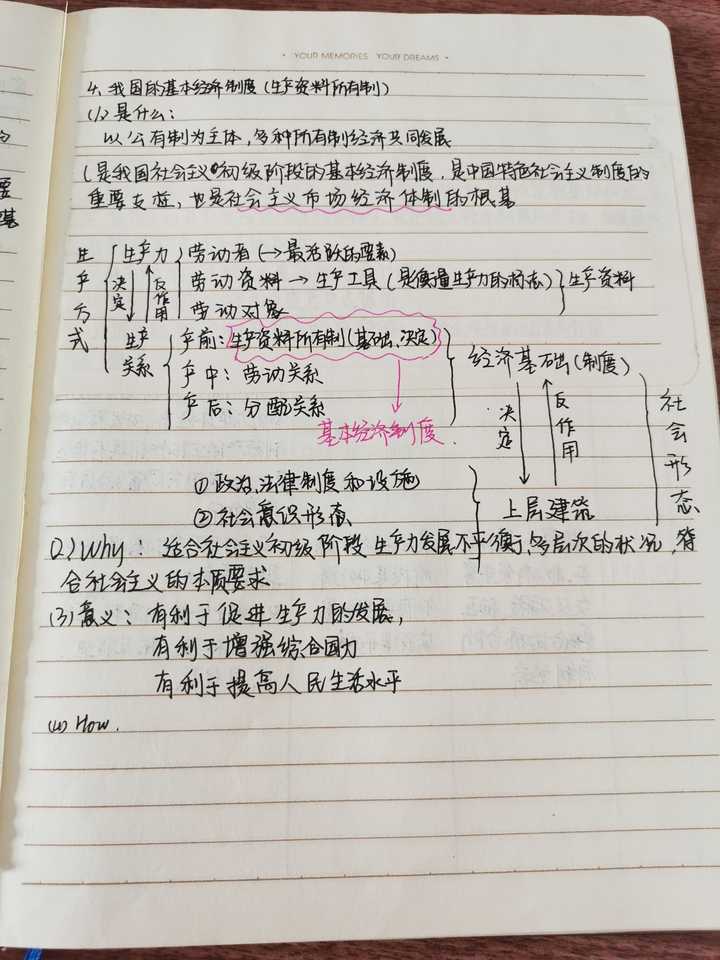 YOUR MEMORIES YOUR DREAMS
4、我国的基本经济制度(生产资料所有制)
(1)是什么:
以公有制为主体,多种所有制经济共同发展
(是我国社会主义初级阶段的基本经济制度,是中国特色社会主义制度的
重要支柱,也是社会主义市场经济体制的根基
生产方式
生产力 劳动者(→最活跃的要素)
决定 反作用 劳动资料→生产工具(是衡量生产力的标志) 生产资料
劳动对象
生产关系 产前:生产资料所有制(基础、决定) 经济基础(制度)
产中:劳动关系
产后:分配关系
基本经济制度.
决定 反作用 社会形态
①政治、法律制度和设施
②社会意识形态
上层建筑
(2)Why:适合社会主义初级阶段生产力发展不平衡、多层次的状况,符
合社会主义的本质要求
(3)意义:有利于促进生产力的发展,
有利于增强综合国力
有利于提高人民生活水平
(4)How.